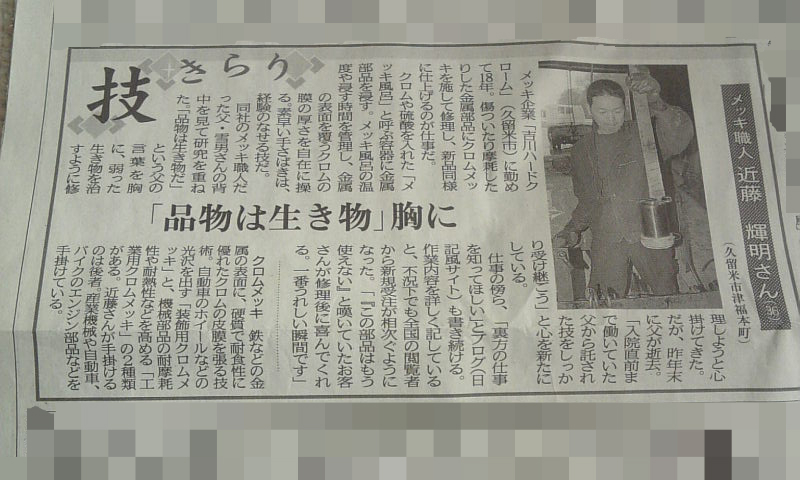 技
きらり
メッキ職人 近藤 輝明さん(36)
(久留米市津福本町)
「品物は生き物」胸に
メッキ企業「吉川ハードク
ローム」(久留米市)に勤め
て18年。傷ついたり摩耗した
りした金属部品にクロムメッ
キを施して修理し、新品同様
に仕上げるのが仕事だ。
クロムや硫酸を入れた「メ
ッキ風呂」と呼ぶ容器に金属
部品を浸す。メッキ風呂の温
度や浸す時間を管理し、金属
の表面を覆うクロムの
膜の厚さを自在に操
る。素早い手さばきは、
経験のなせる技だ。
同社のメッキ職人だ
った父・雪男さんの背
中を見て研究を重ね
た。「品物は生き物だ」
という父の
言葉を胸
に、弱った
生き物を治
すように修
理しようと心
掛けてきた。
だが、昨年末
に父が逝去。
「入院直前ま
で働いていた
父から託され
た技をしっか
りと心を新たに
り受け継ごう」
している。
仕事の傍ら、「裏方の仕事
を知ってほしい」とブログ(日
記風サイト)も書き続ける。
作業内容を詳しく記している
と、不況下でも全国の閲覧者
から新規受注が相次ぐように
なった。「『この部品はもう
使えない』と嘆いていたお客
さんが修理後に喜んでくれ
る。一番うれしい瞬間です」
クロムメッキ 鉄などの金
属の表面に、硬質で耐食性に
優れたクロムの皮膜を張る技
術。自動車のホイールなどの
光沢を出す「装飾用クロムメ
ッキ」と、機械部品の耐摩耗
性や耐熱性などを高める「工
業用クロムメッキ」の2種類
がある。近藤さんが手掛ける
のは後者。産業機械や自動車、
バイクのエンジン部品などを
手掛けている。